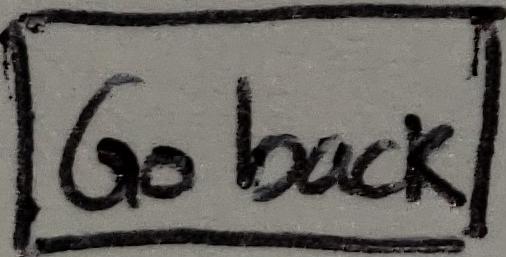 Go back